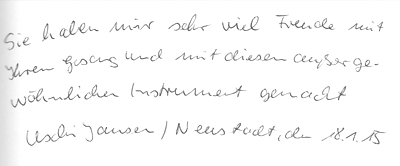 Sie haben mir sehr viel Freude mit
Ihrem Gesang und mit diesen außerge-
wöhnlichen Instrument gemacht
Uschi Jansen / Neustadt, den 18.1.15